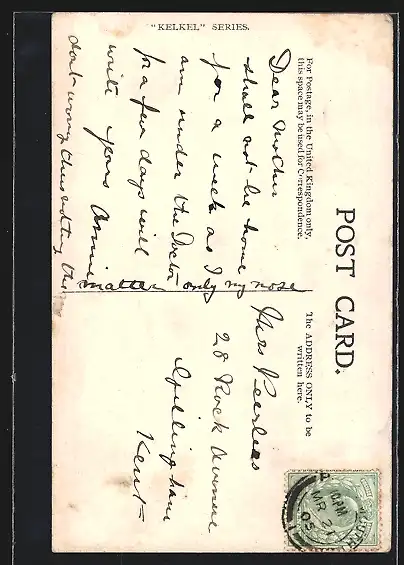 "KELKEL" SERIES.
POST CARD.
For Postage, in the United Kingdom only,
this space may be used for Correspondence.
The ADDRESS ONLY to be
written here.
Dear Mother
shall not be home
for a week as I
am under the Doctor
for a few days will
write yours Annie
dont worry thus the
matter only my nose
Mrs Peerless
28 Rock Avenue
Gillingham
Kent
MR 2
05